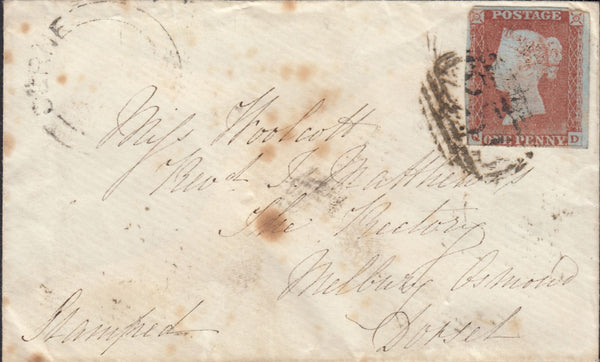 POSTAGE
ONE PENNY
Q D
Miss Woolcott
Revd T. Matthews
The Rectory
Melbury Osmond
Stamped
Dorset